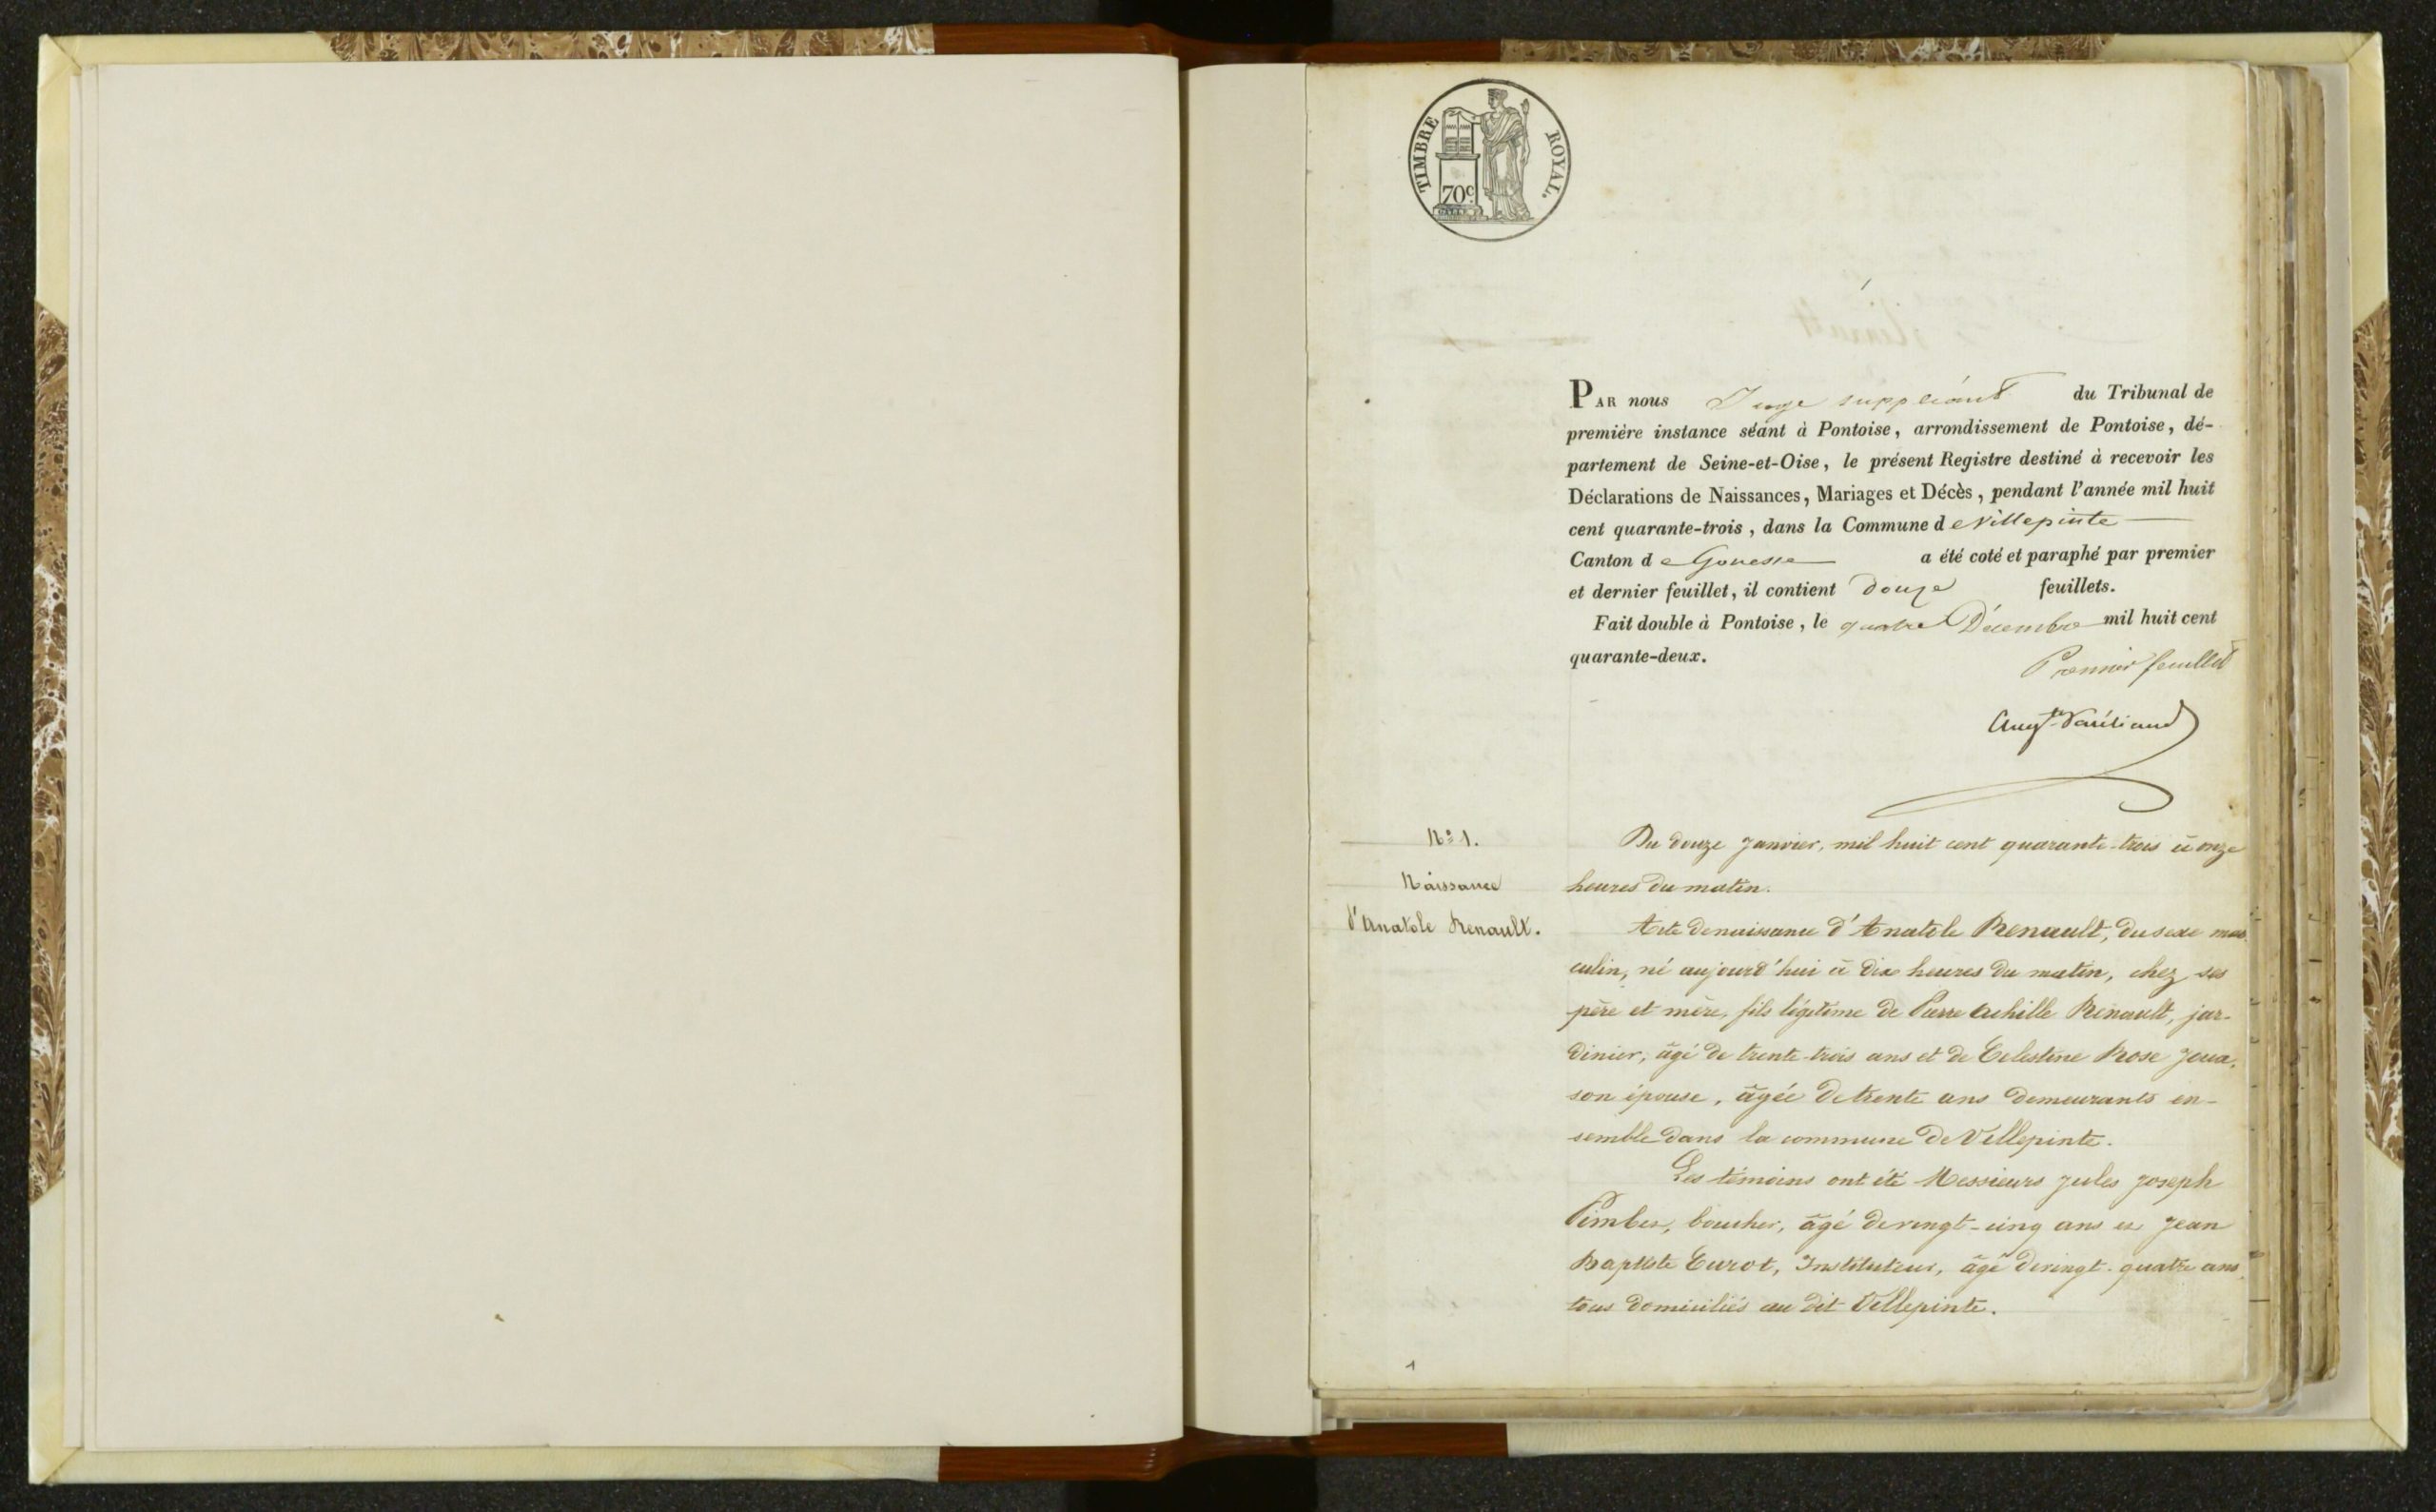 TIMBRE ROYAL.
70c.
1
PAR nous Juge suppléant du Tribunal de
première instance séant à Pontoise, arrondissement de Pontoise, dé-
partement de Seine-et-Oise, le présent Registre destiné à recevoir les
Déclarations de Naissances, Mariages et Décès, pendant l'année mil huit
cent quarante-trois, dans la Commune de Villepinte
Canton de Gonesse a été coté et paraphé par premier
et dernier feuillet, il contient douze feuillets.
Fait double à Pontoise, le quatre Décembre mil huit cent
quarante-deux.
Premier feuillet
N° 1.
Naissance
d'Anatole Renault.
Du douze Janvier, mil huit cent quarante-trois à onze
heures du matin.
Acte de naissance d'Anatole Renault, du sexe mas-
culin, né aujourd'hui à dix heures du matin, chez ses
père et mère, fils légitime de Pierre Achille Renault, jar-
dinier, âgé de trente-trois ans et de Celestine Rose
son épouse, âgée de trente ans demeurants en-
semble dans la commune de Villepinte.
Les témoins ont été Messieurs Jules Joseph
boucher, âgé de vingt-cinq ans et Jean
Baptiste Curot, Instituteur, âgé de vingt-quatre ans,
tous domiciliés au dit Villepinte.
1